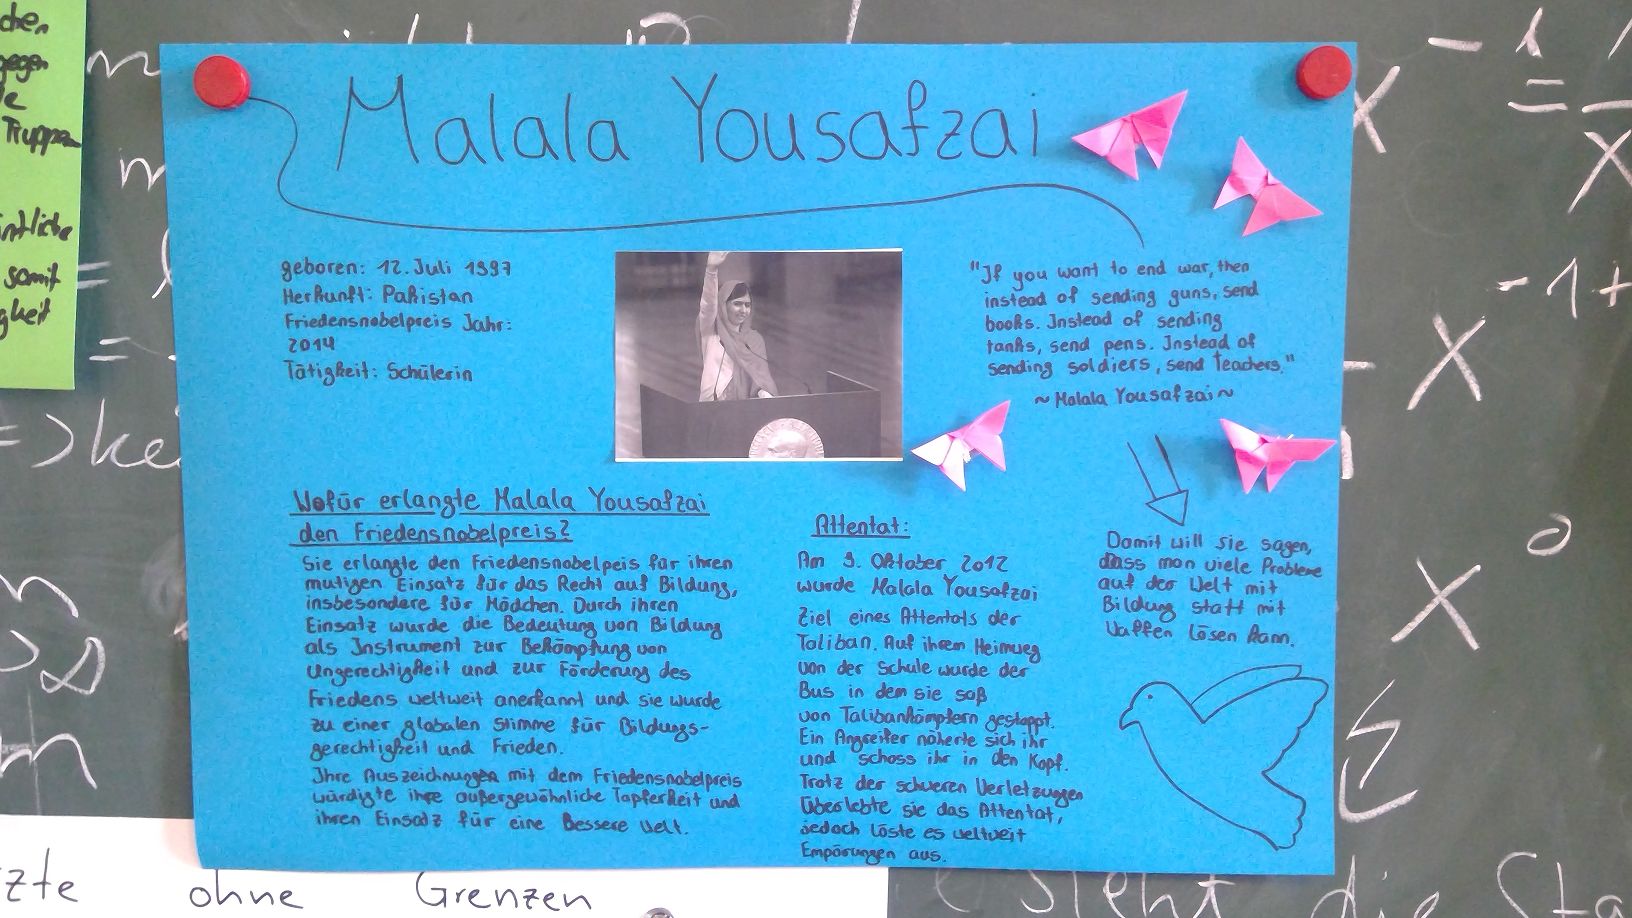 Malala Yousafzai
geboren: 12. Juli 1997
Herkunft: Pakistan
Friedensnobelpreis Jahr:
2014
Tätigkeit: Schülerin
"If you want to end war, then
instead of sending guns, send
books. Instead of sending
tanks, send pens. Instead of
sending soldiers, send teachers."
~ Malala Yousafzai ~
Damit will sie sagen,
dass man viele Probleme
auf der Welt mit
Bildung statt mit
Waffen lösen kann.
Wofür erlangte Malala Yousafzai
den Friedensnobelpreis?
Sie erlangte den Friedensnobelpeis für ihren
mutigen Einsatz für das Recht auf Bildung,
insbesondere für Mädchen. Durch ihren
Einsatz wurde die Bedeutung von Bildung
als Instrument zur Bekämpfung von
Ungerechtigkeit und zur Förderung des
Friedens weltweit anerkannt und sie wurde
zu einer globalen Stimme für Bildungs-
gerechtigkeit und Frieden.
Ihre Auszeichnungen mit dem Friedensnobelpreis
würdigte ihre außergewöhnliche Tapferkeit und
ihren Einsatz für eine Bessere Welt.
Attentat:
Am 9. Oktober 2012
wurde Malala Yousafzai
Ziel eines Attentats der
Taliban. Auf ihrem Heimweg
von der Schule wurde der
Bus in dem sie saß
von Talibankämpfern gestoppt.
Ein Angreifer näherte sich ihr
und schoss ihr in den Kopf.
Trotz der schweren Verletzungen
Überlebte sie das Attentat,
jedoch löste es weltweit
Empörungen aus.
chen
gegen
Truppen
somit
ohne Grenzen
steht die Sta